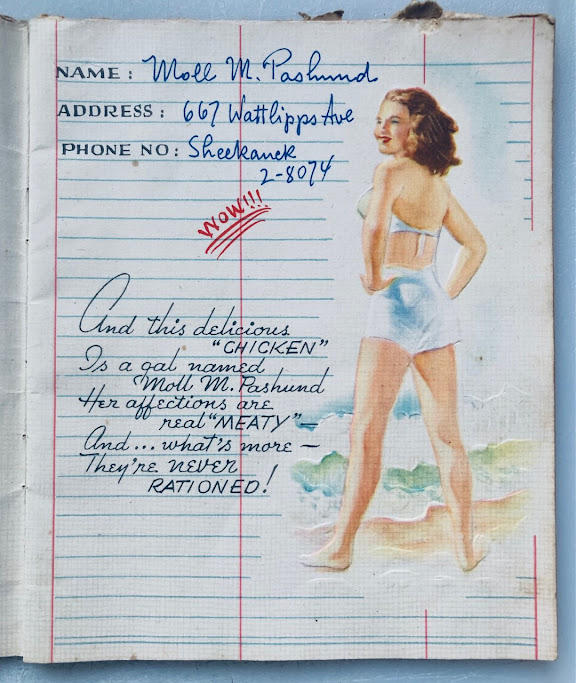 NAME: Moll M. Pashund
ADDRESS: 667 Wattlipps Ave
PHONE NO: Sheekanek
2-8074
WOW!!!
And this delicious
"CHICKEN"
Is a gal named
Moll M. Pashund
Her affections are
real "MEATY"—
And... what's more —
They're NEVER
RATIONED!